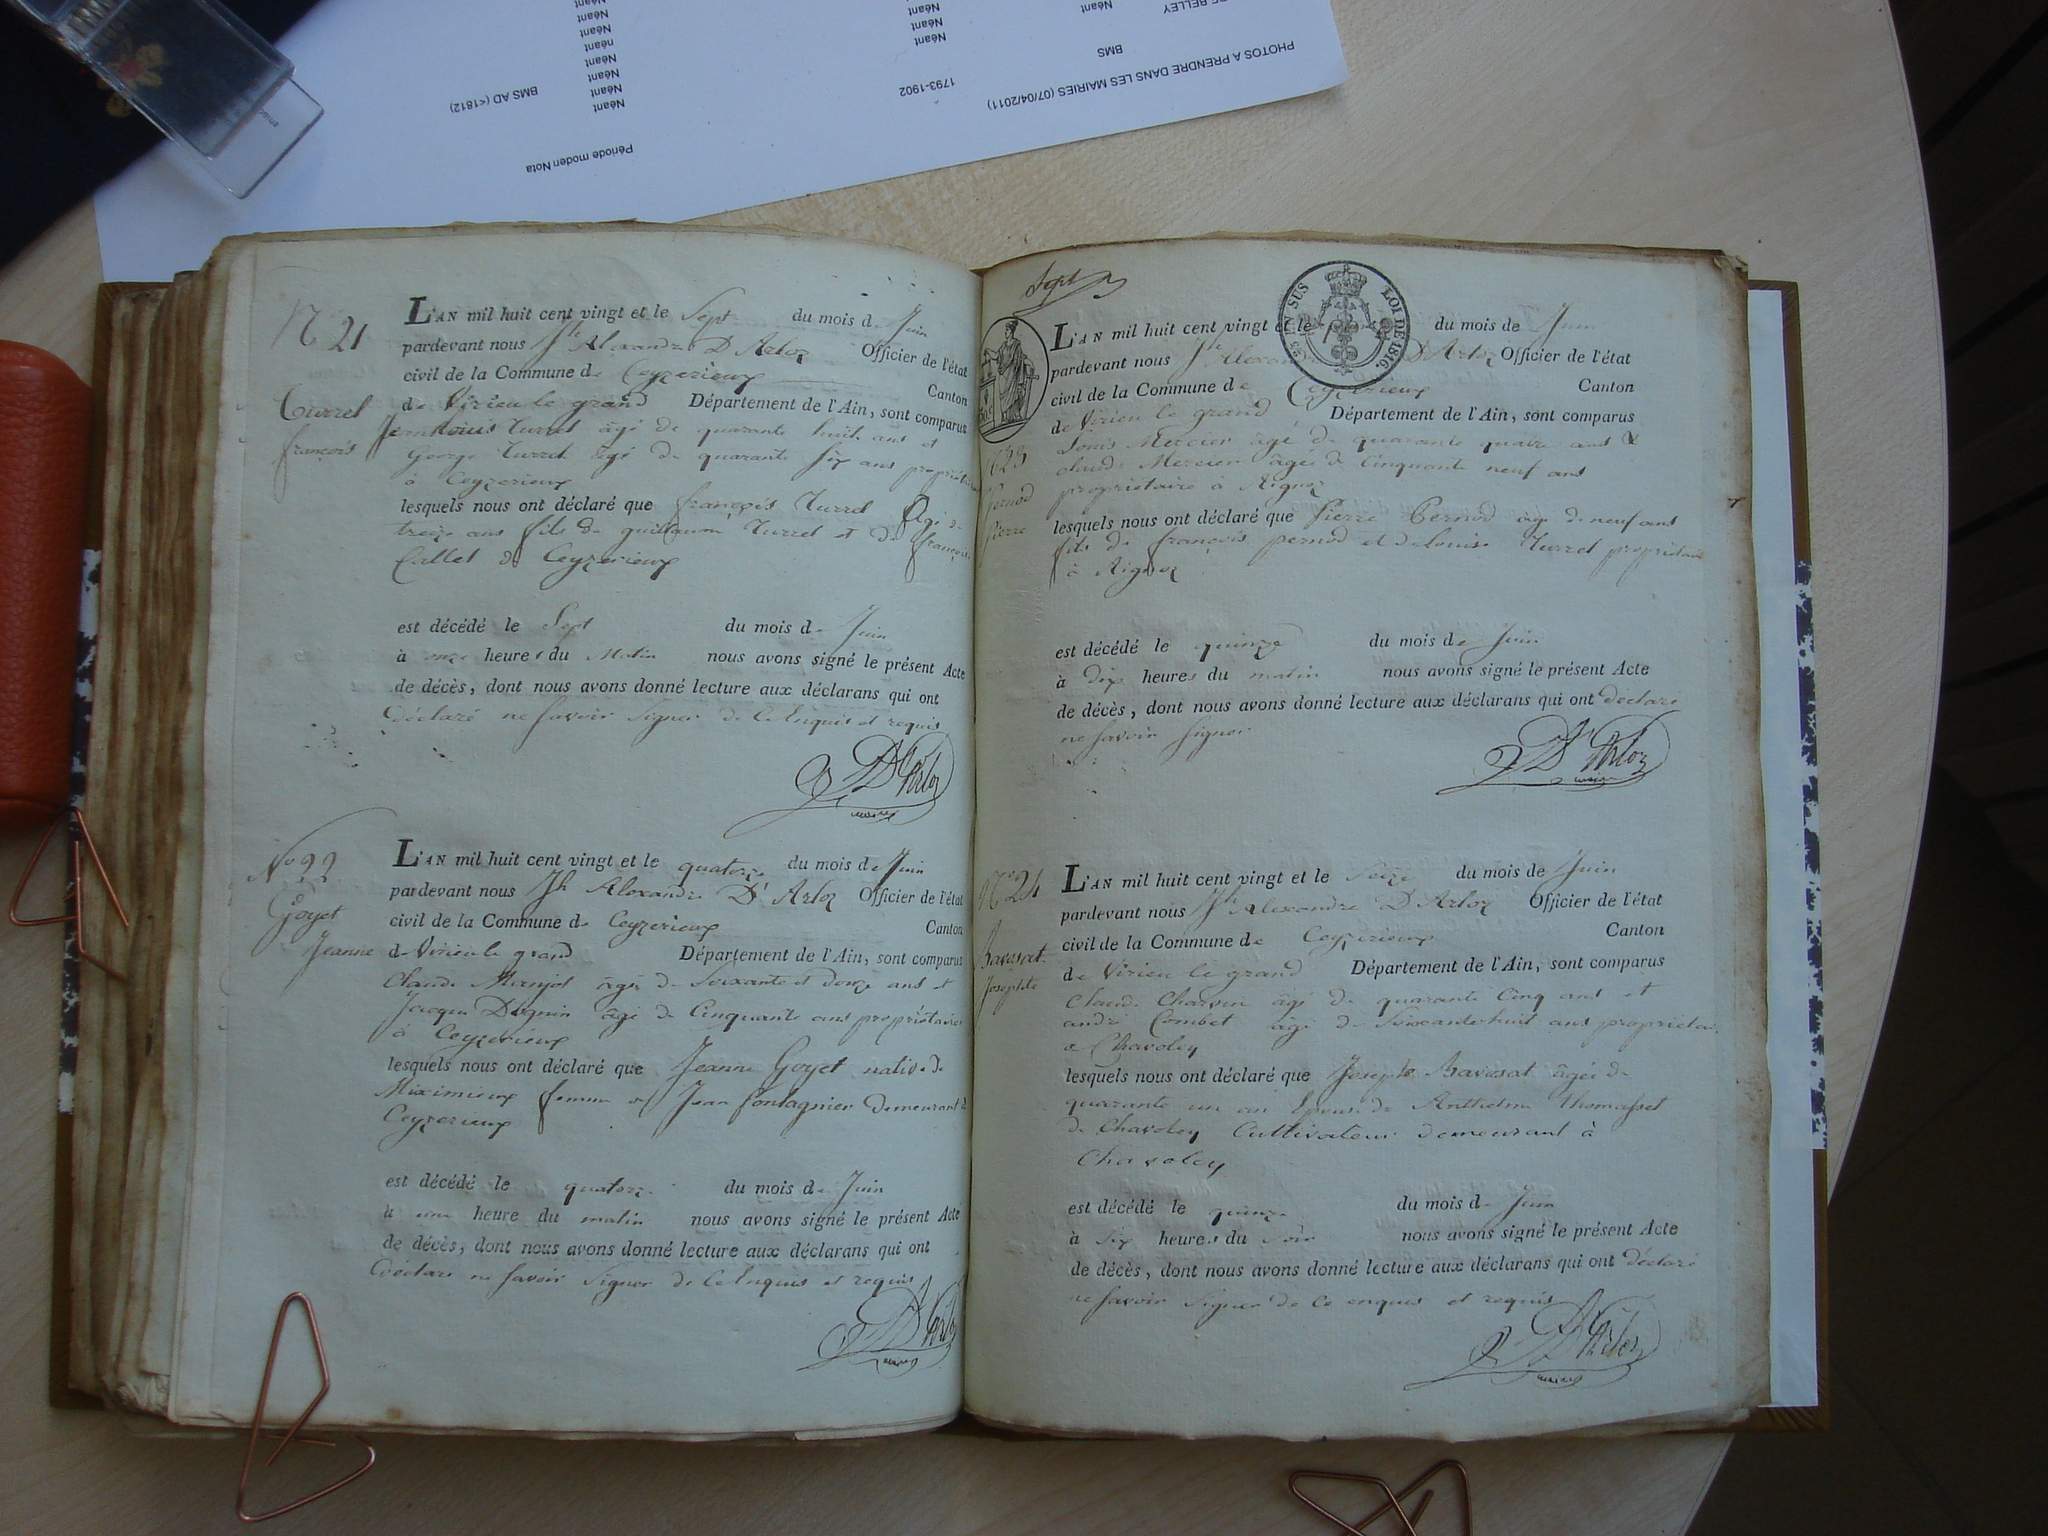 PHOTOS A PRENDRE DANS LES MAIRIES (07/04/2011)
DE BELLEY
BMS
Néant
1793-1902
Néant
Néant
Néant
BMS AD (<1812)
Néant
Néant
Néant
néant
Néant
Néant
Néant
Période moden Nota
N° 21
Turrel
françois
L'AN mil huit cent vingt et le Sept du mois de Juin
pardevant nous Jh Alexandre D'Arloz Officier de l'état
civil de la Commune de Ceyzerieux Canton
de Virieu le grand Département de l'Ain, sont comparus
Jean Louis Turrel âgé de quarante huit ans et
George Turrel âgé de quarante six ans propriétaires
à Ceyzerieux
lesquels nous ont déclaré que françois Turrel Agé de
treize ans fils de guillaume Turrel et de françoise
Callet de Ceyzerieux
est décédé le Sept du mois de Juin
à onze heures du Matin nous avons signé le présent Acte
de décès, dont nous avons donné lecture aux déclarans qui ont
déclaré ne Savoir Signer de Ce Enquis et requis
D'Arloz
maire
No 22
Goyet
Jeanne
L'AN mil huit cent vingt et le quatorze du mois de Juin
pardevant nous Jh Alexandre D'Arloz Officier de l'état
civil de la Commune de Ceyzerieux Canton
de Virieu le grand Département de l'Ain, sont comparus
Claude Manjot âgé de Soixante et douze ans et
Jacques Dugnin âgé de Cinquante ans propriétaires
à Ceyzerieux
lesquels nous ont déclaré que Jeanne Goyet native de
Miximieux femme de Jean fontagnier demeurant à
Ceyzerieux
est décédé le quatorze du mois de Juin
à une heure du matin nous avons signé le présent Acte
de décès, dont nous avons donné lecture aux déclarans qui ont
déclaré ne Savoir Signer de Ce Enquis et requis
D'Arloz
maire
Sept
25 EN SUS LOI DE 1816.
N° 23
Pernod
Pierre
L'AN mil huit cent vingt et le du mois de Juin
pardevant nous Jh Alexandre D'Arloz Officier de l'état
civil de la Commune de Ceyzerieux Canton
de Virieu le grand Département de l'Ain, sont comparus
Louis Mercier âgé de quarante quatre ans &
claude Mercier âgé de Cinquante neuf ans
propriétaire à Aignoz
lesquels nous ont déclaré que Pierre Pernod âgé de neuf ans
fils de françois pernod et de Louise Turrel propriétaire
à Aignoz
est décédé le quinze du mois de Juin
à dix heures du matin nous avons signé le présent Acte
de décès, dont nous avons donné lecture aux déclarans qui ont déclaré
ne Savoir Signer
D'Arloz
maire
N° 24
Bavosat
Josephte
L'AN mil huit cent vingt et le Seize du mois de Juin
pardevant nous Jh Alexandre D'Arloz Officier de l'état
civil de la Commune de Ceyzerieux Canton
de Virieu le grand Département de l'Ain, sont comparus
Claude Charvin âgé de quarante Cinq ans et
andré Combet âgé de Soixante huit ans propriétaires
à Chavoley
lesquels nous ont déclaré que Josephte Bavosat âgée de
quarante un an Epouse de Anthelme Thomasset
de Chavoley Cultivateur demeurant à
Chavoley
est décédé le quinze du mois de Juin
à Six heures du Soir nous avons signé le présent Acte
de décès, dont nous avons donné lecture aux déclarans qui ont déclaré
ne Savoir Signer de Ce enquis et requis
D'Arloz
maire